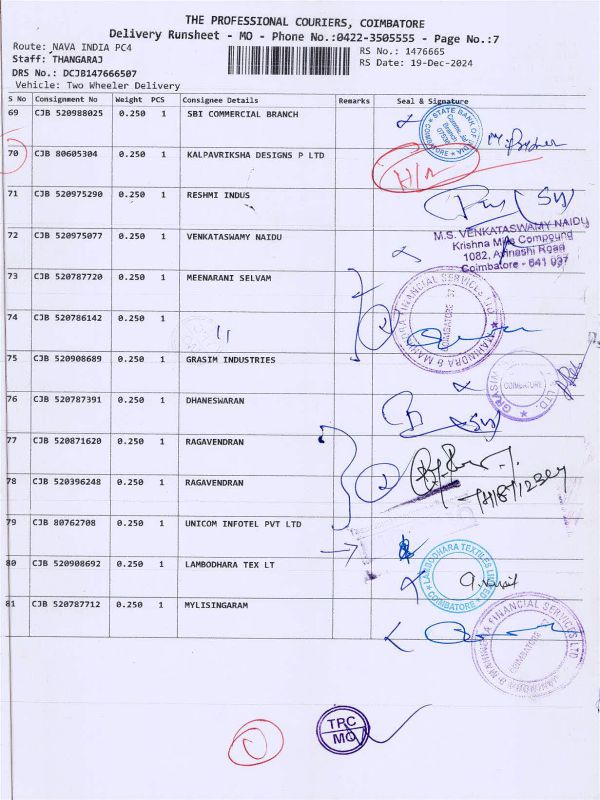 THE PROFESSIONAL COURIERS, COIMBATORE
Delivery Runsheet - MO - Phone No.:0422-3505555 - Page No.:7
Route: NAVA INDIA PC4
RS No.: 1476665
Staff: THANGARAJ
RS Date: 19-Dec-2024
DRS No.: DCJB147666507
Vehicle: Two Wheeler Delivery
S No Consignment No Weight PCS Consignee Details Remarks Seal & Signature
69 CJB 520988025 0.250 1 SBI COMMERCIAL BRANCH
STATE BANK OF
COIMBATORE
70 CJB 80605304 0.250 1 KALPAVRIKSHA DESIGNS P LTD
71 CJB 520975290 0.250 1 RESHMI INDUS
72 CJB 520975077 0.250 1 VENKATASWAMY NAIDU
M.S. VENKATASWAMY NAIDU
Krishna Mills Compoung
1082, Avinashi Road
Coimbatore - 641 037
73 CJB 520787720 0.250 1 MEENARANI SELVAM
74 CJB 520786142 0.250 1 "
MAHINDRA & MAHINDRA FINANCIAL SERVICES LTD
COIMBATORE 37
75 CJB 520908689 0.250 1 GRASIM INDUSTRIES
COIMBATORE
76 CJB 520787391 0.250 1 DHANESWARAN
77 CJB 520871620 0.250 1 RAGAVENDRAN
78 CJB 520396248 0.250 1 RAGAVENDRAN
79 CJB 80762708 0.250 1 UNICOM INFOTEL PVT LTD
80 CJB 520908692 0.250 1 LAMBODHARA TEX LT
LAMBODHARA TEXTILES LIMITED
COIMBATORE
81 CJB 520787712 0.250 1 MYLISINGARAM
MAHINDRA & MAHINDRA FINANCIAL SERVICES LTD
COIMBATORE 37
TPC
MO